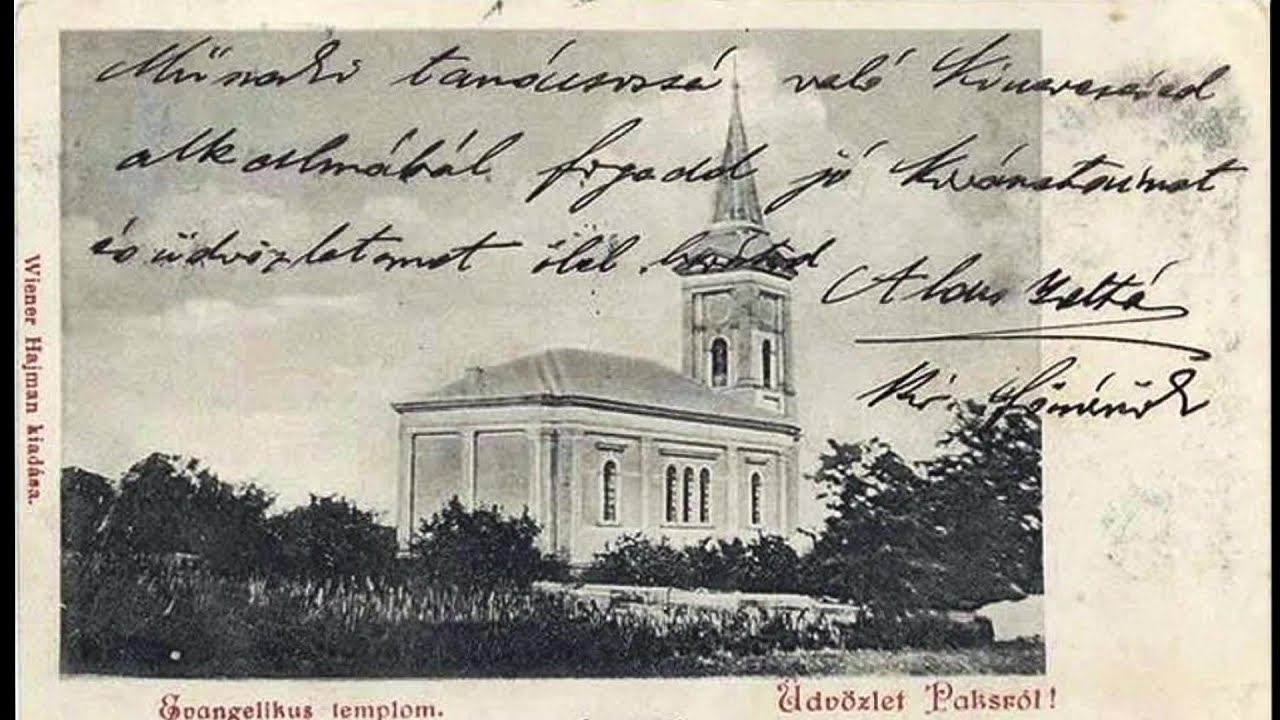 Műszaki tanácsossá való kinevezésed
alkalmából fogadd jó kívánataimat
és üdvözletemet ölel barátod
Zoltán
Kir. főmérnök
Wiener Hajman kiadása.
Evangelikus templom.
Üdvözlet Paksról!